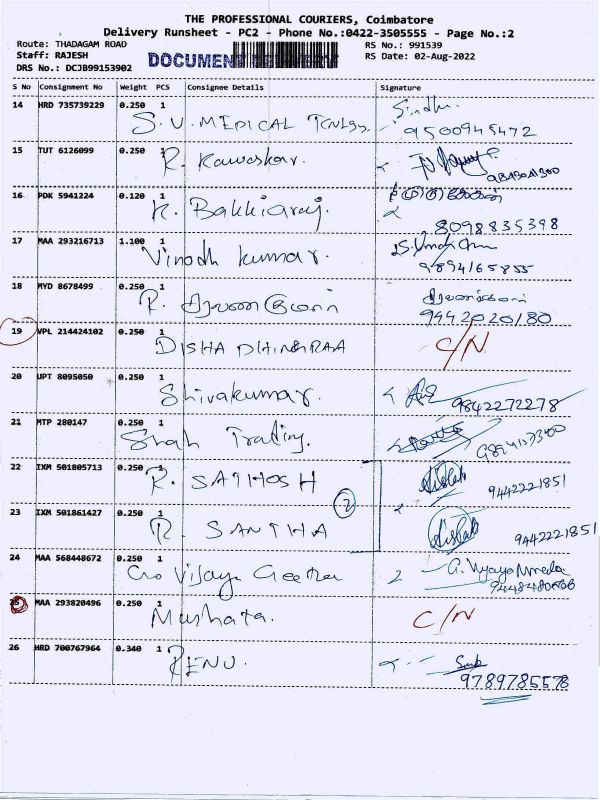 THE PROFESSIONAL COURIERS, Coimbatore
Delivery Runsheet - PC2 - Phone No.:0422-3505555 - Page No.:2
Route: THADAGAM ROAD RS No.: 991539
Staff: RAJESH DOCUMENT DELIVERY RS Date: 02-Aug-2022
DRS No.: DCJB99153902
S No Consignment No Weight PCS Consignee Details Signature
14 HRD 735739229 0.250 1 Sindhu.
S. V. MEDICAL 9500945472
15 TUT 6126099 0.250 1
R. Kawaskar.
16 PDK 5941224 0.120 1
K. Bakkiaraj. 8098835398
17 MAA 293216713 1.100 1
Vinodh kumar. 9894165855
18 MYD 8678499 0.250 1
R. 9442020180
19 VPL 214424102 0.250 1 C/N
DISHA DHINGRAA
20 UPT 8095050 0.250 1
Shivakumar. 9842272278
21 MTP 280147 0.250 1
Shah Trading.
22 IXM 501805713 0.250 1
R. SATHOSH 2 9442221851
23 IXM 501861427 0.250 1
R. SANTHA 9442221851
24 MAA 568448672 0.250 1
C/o Vijaya Geetha
25 MAA 293820496 0.250 1
C/N
26 HRD 700767964 0.340 1
RENU. 9789785578